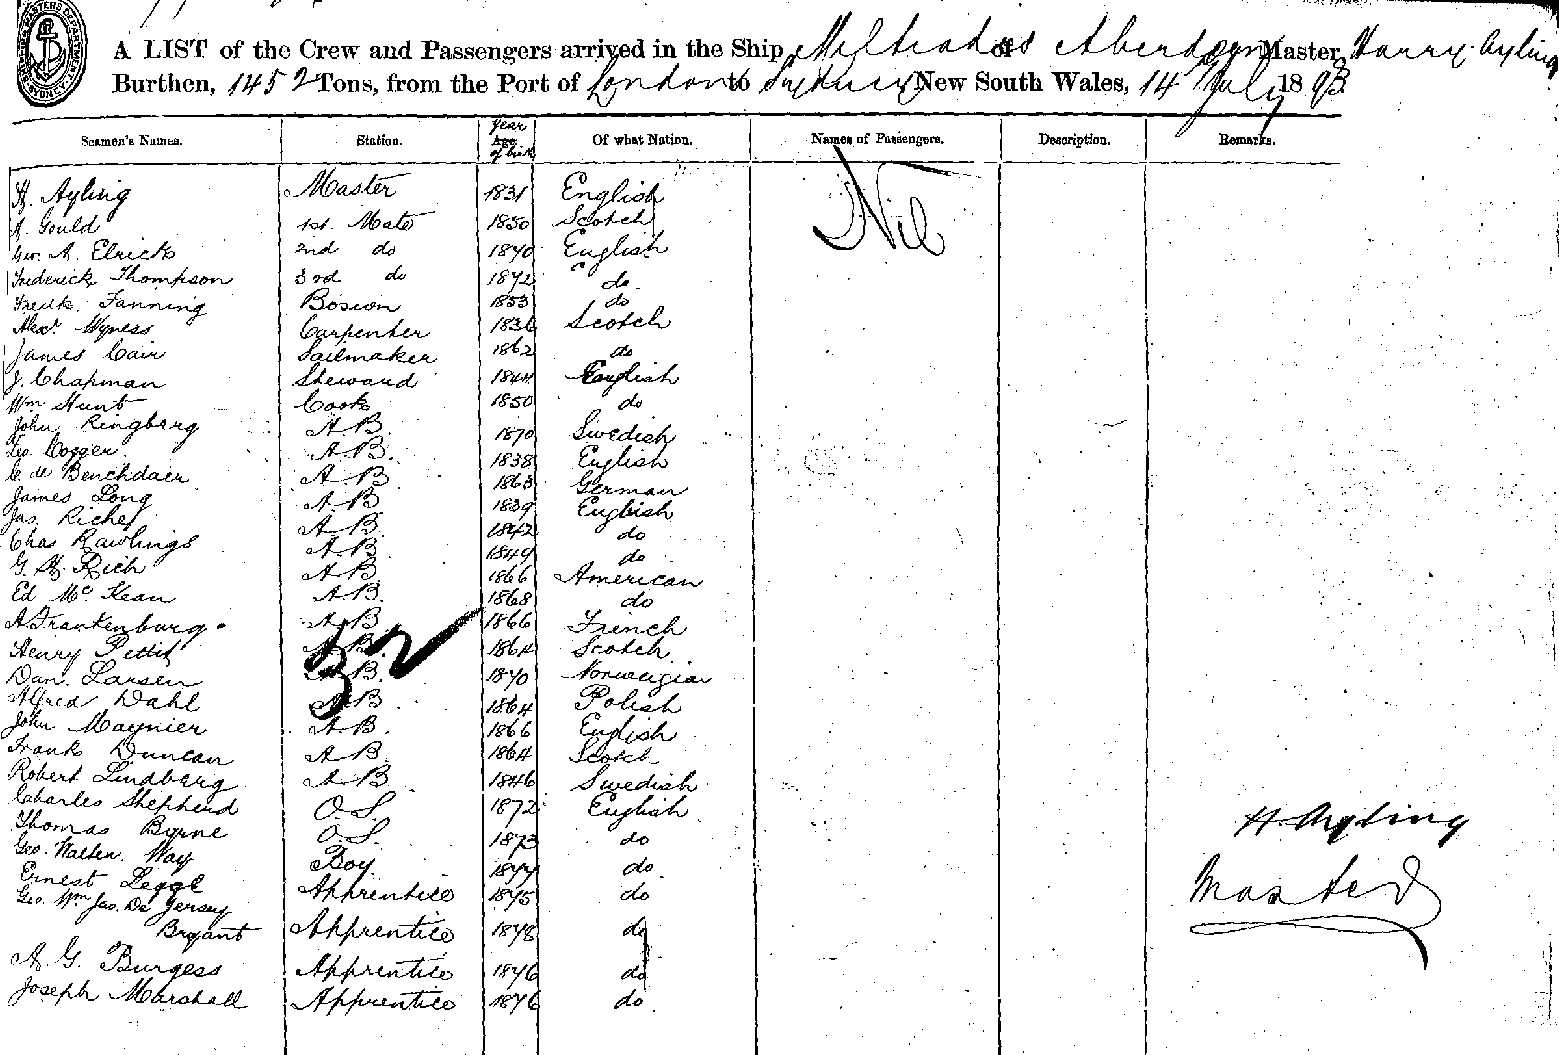 A LIST of the Crew and Passengers arrived in the Ship Miltiades of Aberdeen Master, Harry Ayling
Burthen, 1452 Tons, from the Port of London to Sydney New South Wales, 14 July 1893
Seamen's Names. Station. Year Age of birth Of what Nation. Names of Passengers. Description. Remarks.
H. Ayling Master 1831 English Nil
A. Gould 1st. Mate 1850 Scotch
Geo. A. Elrick 2nd do 1870 English
Frederick Thompson 3rd do 1872 do.
Fredk. Fanning Bosion 1853 do
Alexr. Wyness Carpenter 1836 Scotch
James Cair Sailmaker 1862 do
J. Chapman Steward 1844 English
Wm Hunt Cook 1850 do
John Ringberg A.B. 1870 Swedish
Geo. Cogger A.B. 1838 English
C. de Benchdaer A.B. 1863 German
James Long A.B. 1839 English
Jas. Riches A.B. 1842 do
Chas Rawlings A.B. 1849 do
G. H. Rich A.B. 1866 American
Ed Mc. Kean A.B. 1868 do
A Frankenburg A.B. 1866 French
Henry Pettit A.B. 1864 Scotch
Dan. Larsen A.B. 1870 Norweigian
Alfred Dahl A.B. 1864 Polish
John Maynier A.B. 1866 English
Frank Duncan A.B. 1864 Scotch
Robert Lindberg A.B. 1846 Swedish
32
Charles Shepherd O.S. 1872 English
Thomas Byrne O.S. 1873 do
Geo. Walter. Way Boy 1877 do
Ernest Legge Apprentice 1875 do
Geo. Wm Jas. De Jersey
Bryant Apprentice 1878 do
A. G. Burgess Apprentice 1876 do
Joseph Marshall Apprentice 1876 do.
H. Ayling
Master